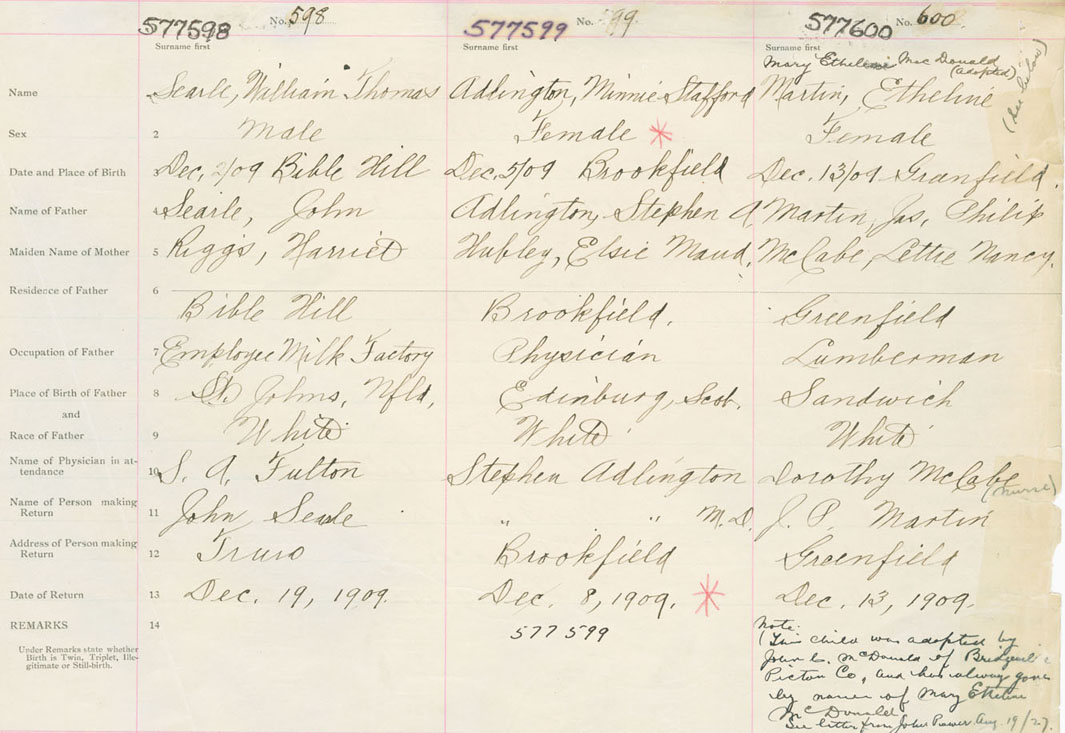 577598 No. 598 577599 No. 99 577600 No. 600
Surname first Surname first Surname first
Mary Etheline Mac Donald
(adopted)
(see below)
Name Searle, William Thomas Adlington, Minnie Stafford Martin, Etheline
Sex 2 Male Female Female
Date and Place of Birth 3 Dec. 2/09 Bible Hill Dec. 5/09 Brookfield Dec. 13/09 Greenfield.
Name of Father 4 Searle, John Adlington, Stephen A Martin, Jas, Philip
Maiden Name of Mother 5 Riggs, Harriet Hubley, Elsie Maud. McCabe, Lettie Nancy.
Residence of Father 6
Bible Hill Brookfield. Greenfield
Occupation of Father 7 Employee Milk Factory Physician Lumberman
Place of Birth of Father 8 St. Johns, Nfld, Edinburg, Scot. Sandwich
and
Race of Father 9 White White White
Name of Physician in at-
tendance 10 S. A. Fulton Stephen Adlington Dorothy McCabe
(nurse)
Name of Person making
Return 11 John Searle " " M.D. J. P. Martin
Address of Person making
Return 12 Truro Brookfield Greenfield
Date of Return 13 Dec. 19, 1909. Dec. 8, 1909. Dec. 13, 1909.
REMARKS 14
577 599
Under Remarks state whether
Birth is Twin, Triplet, Ille-
gitimate or Still-birth.
Note:
(This child was adopted by
John C. McDonald of
Pictou Co, and has always gone
by name of Mary Etheline
McDonald
See letter from John Power Aug. 19/27.